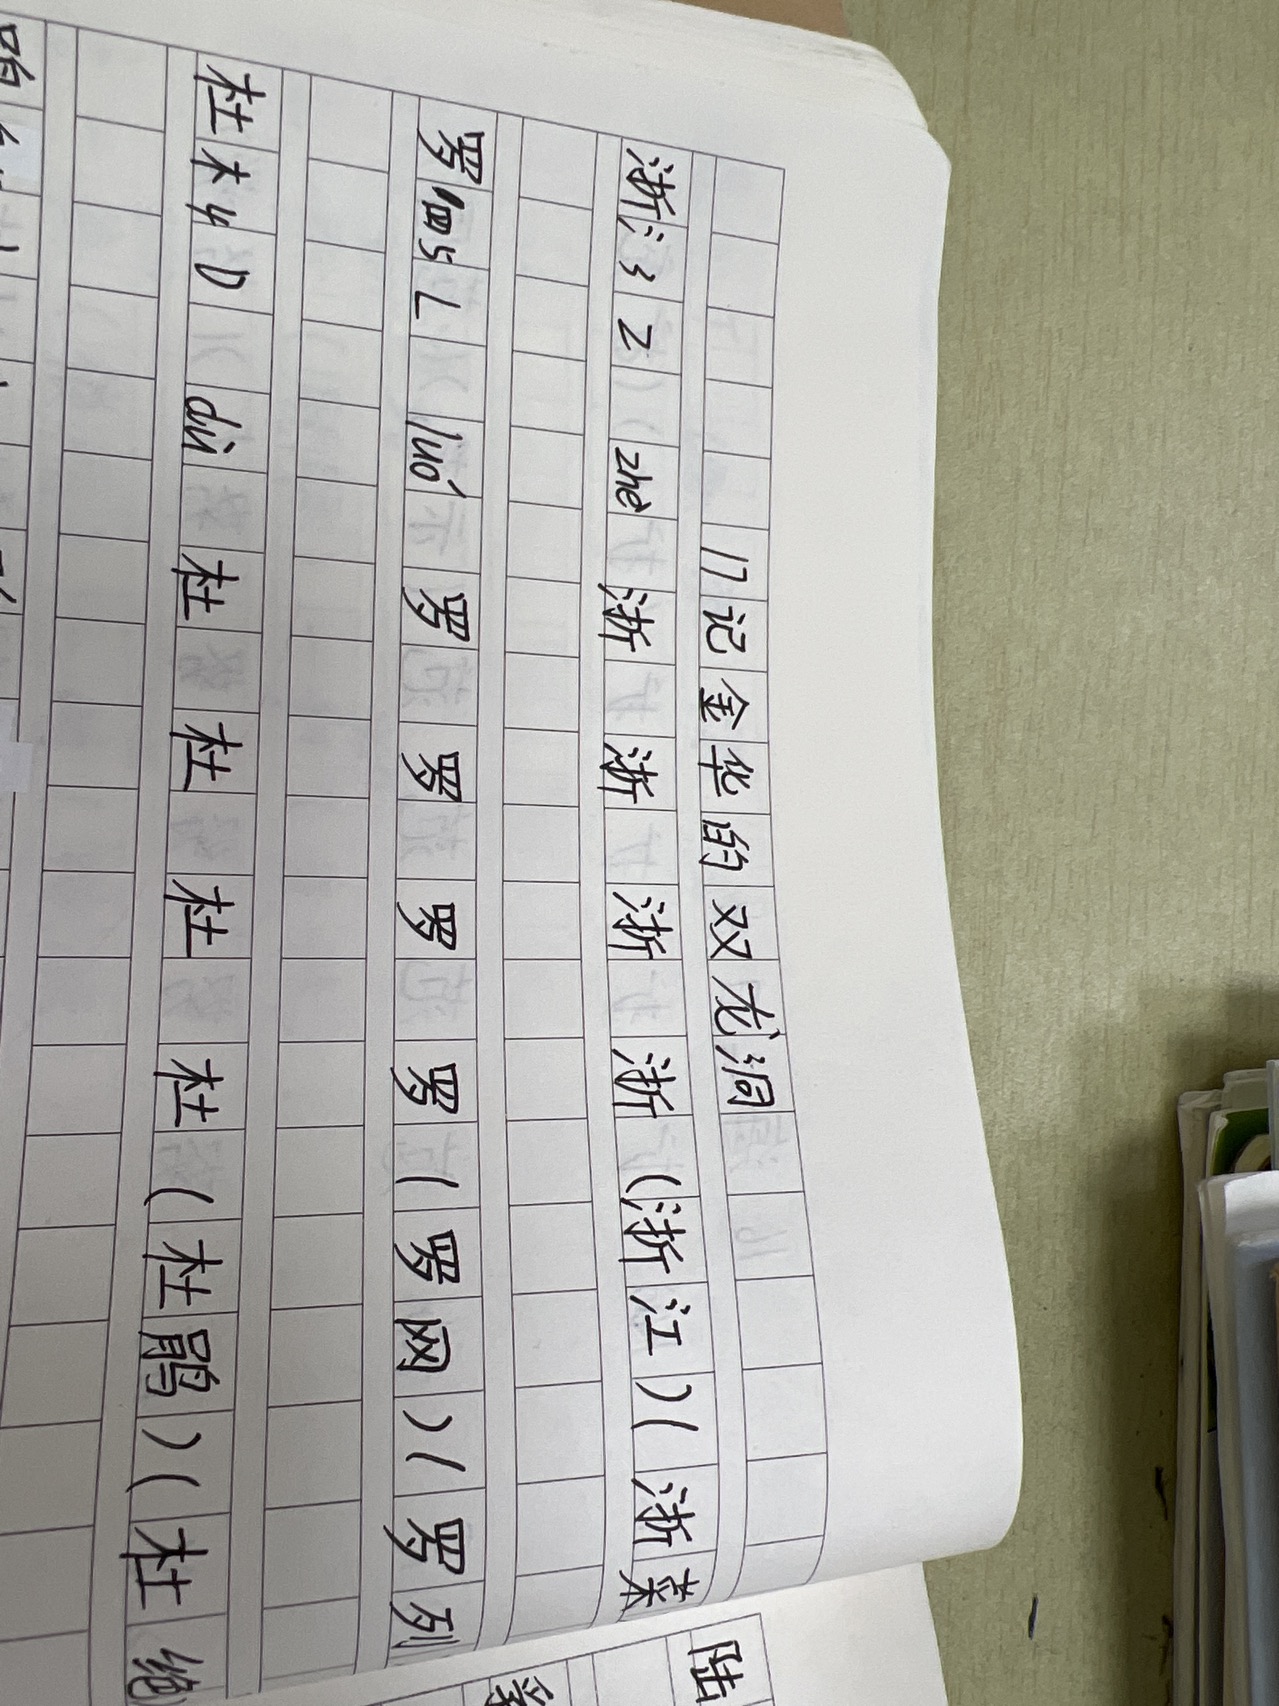 17记金华的双龙洞
浙氵3 Z zhè 浙 浙 浙 浙 (浙江)(浙菜
罗罒5 L luó 罗 罗 罗 罗 (罗网)(罗列
杜木4 D dù 杜 杜 杜 杜 (杜鹃)(杜绝
陆